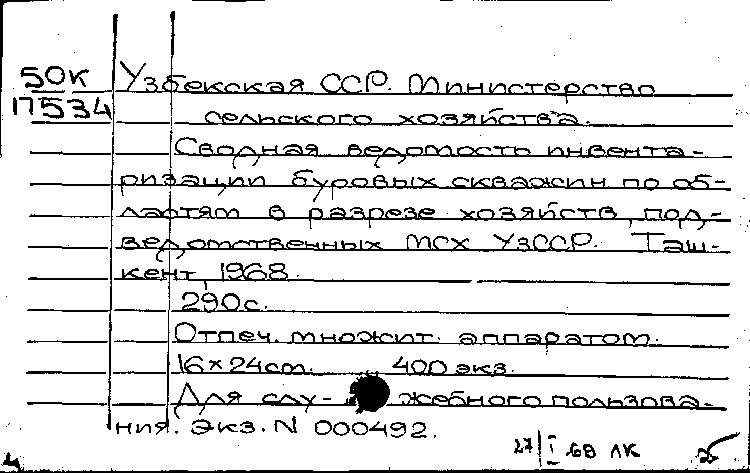 50К
17534
Узбекская ССР. Министерство
сельского хозяйства.
Сводная ведомость инвента-
ризации буровых скважин по об-
ластям в разрезе хозяйств, под-
ведомственных МСХ УзССР. Таш-
кент, 1968.
290с.
Отпеч. множит. аппаратом.
16×24cm. 400 экз.
Для слу- жебного пользова-
ния. Экз. N 000492.
27/I 69 ЛК